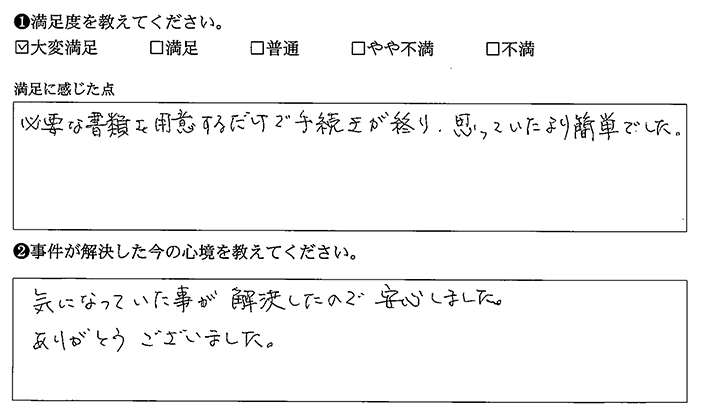 ❶満足度を教えてください。
☑大変満足 □満足 □普通 □やや不満 □不満
満足に感じた点
必要な書類を用意するだけで手続きが終り、思っていたより簡単でした。
❷事件が解決した今の心境を教えてください。
気になっていた事が解決したので安心しました。
ありがとうございました。